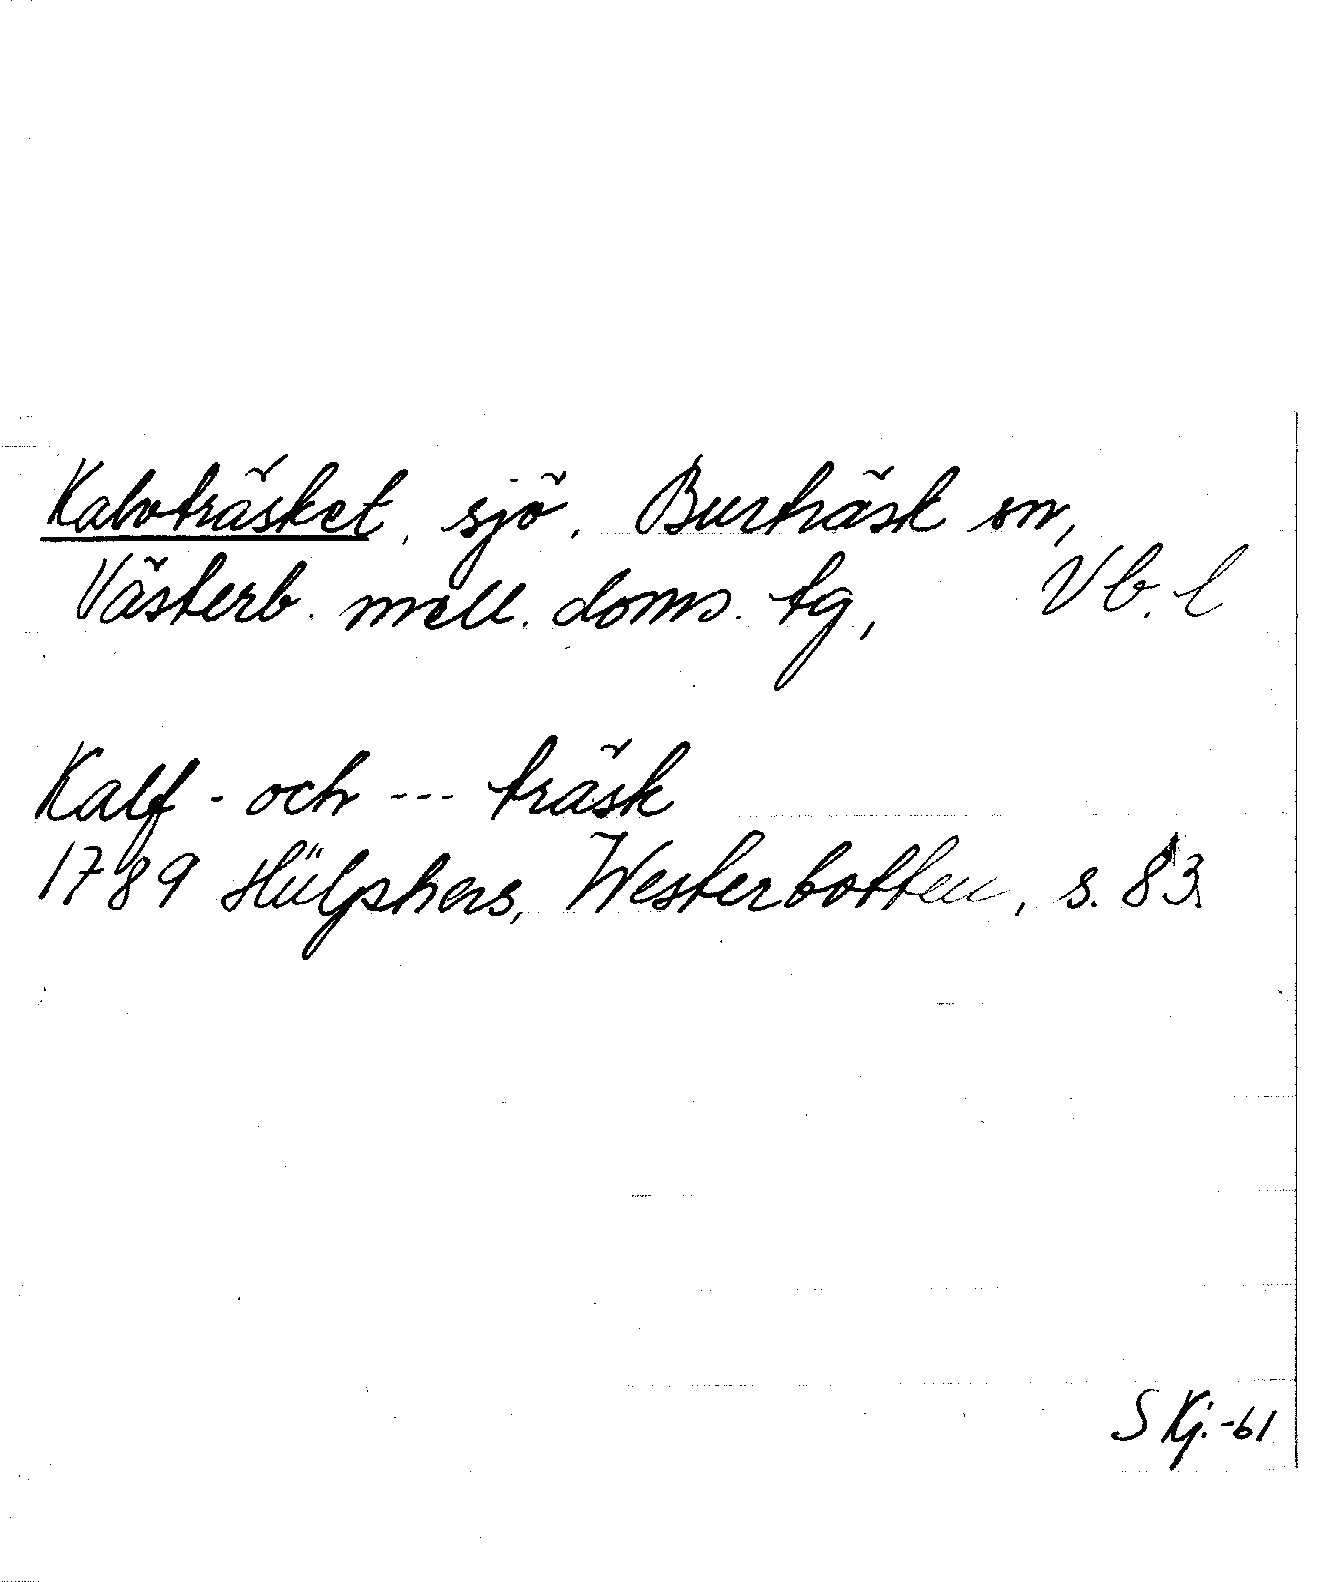 Kalvträsket, sjö, Burträsk sn,
Västerb. mell. doms. tg, Vb. l
Kalf- och --- träsk
1789 Hülphers, Westerbotten, s. 83
S Kj.-61